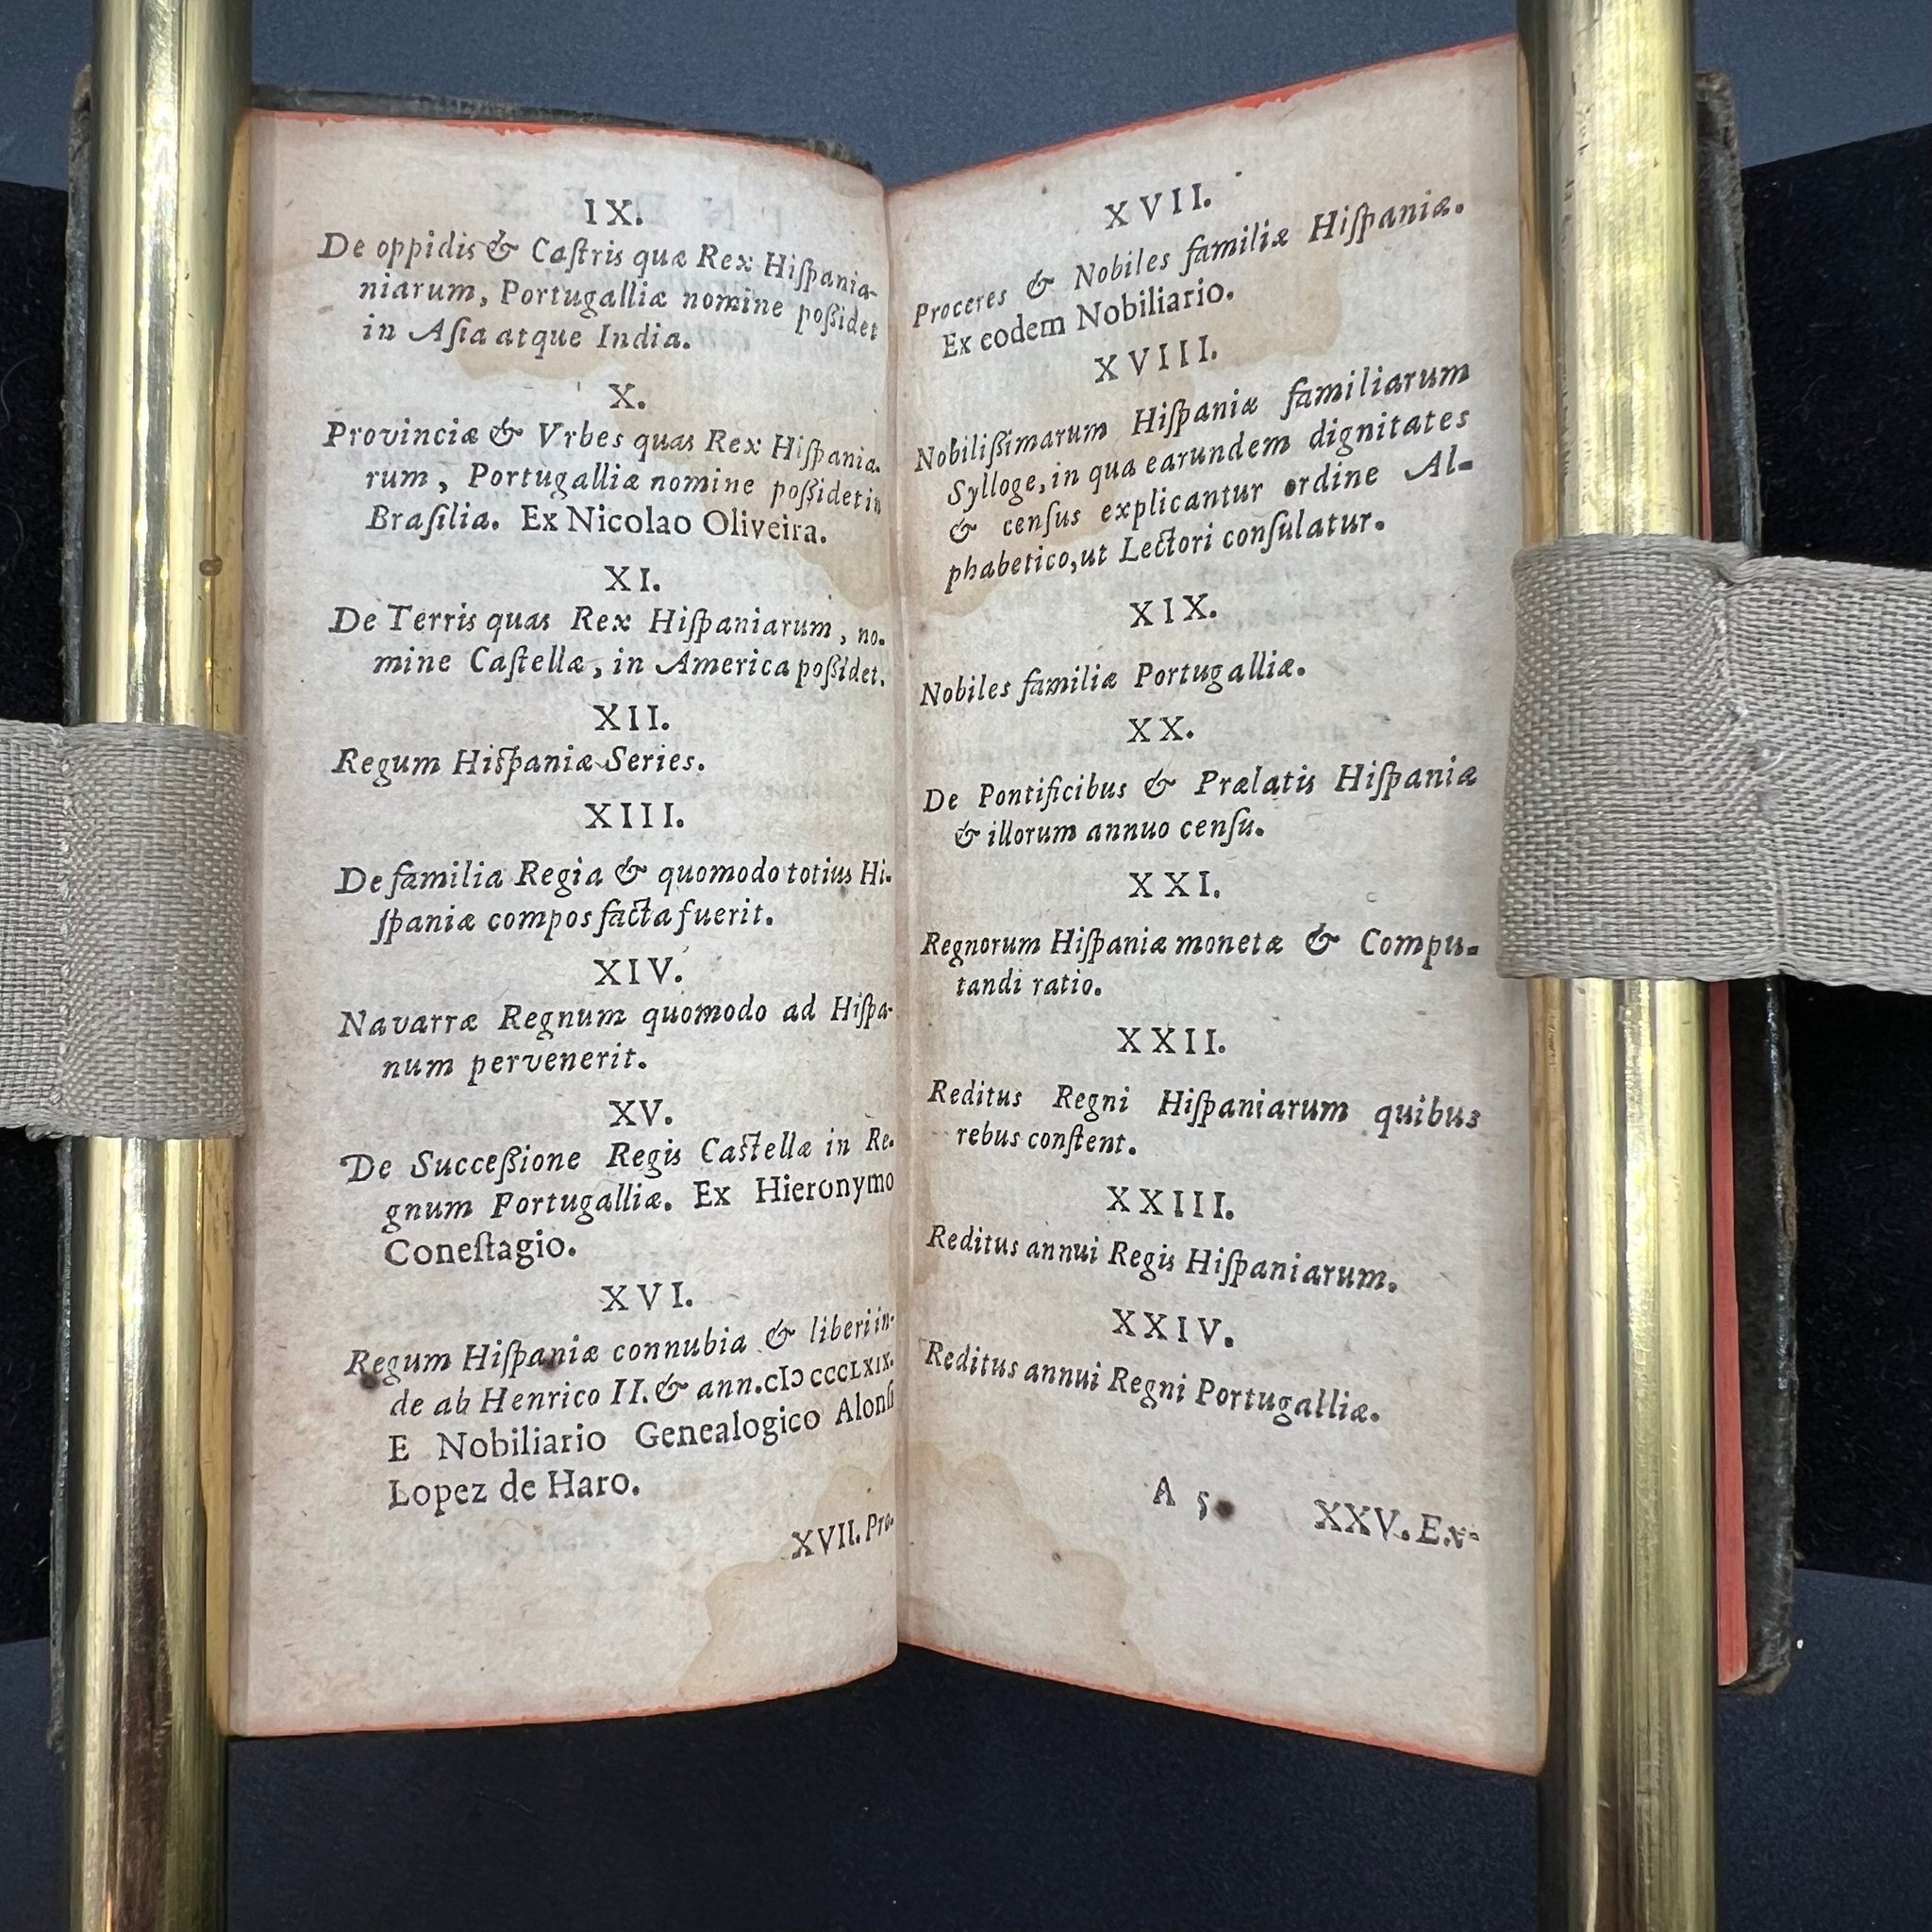 IX.
De oppidis & Caſtris quæ Rex Hiſpania-
niarum, Portugalliæ nomine poßidet
in Aſia atque India.
X.
Provinciæ & Vrbes quas Rex Hiſpania-
rum, Portugalliæ nomine poſſidet in
Braſilia. Ex Nicolao Oliveira.
XI.
De Terris quas Rex Hiſpaniarum, no-
mine Caſtellæ, in America poßidet.
XII.
Regum Hiſpaniæ Series.
XIII.
De familia Regia & quomodo totius Hi-
ſpaniæ compos facta fuerit.
XIV.
Navarræ Regnum quomodo ad Hiſpa-
num pervenerit.
XV.
De Succeßione Regis Caſtellæ in Re-
gnum Portugalliæ. Ex Hieronymo
Coneſtagio.
XVI.
Regum Hiſpaniæ connubia & liberi in-
de ab Henrico II. & ann. cIɔ cccLXIX.
E Nobiliario Genealogico Alonſi
Lopez de Haro.
XVII. Pro-
XVII.
Proceres & Nobiles familiæ Hiſpaniæ.
Ex eodem Nobiliario.
XVIII.
Nobilißimarum Hiſpaniæ familiarum
Sylloge, in qua earundem dignitates
& cenſus explicantur ordine Al-
phabetico, ut Lectori conſulatur.
XIX.
Nobiles familiæ Portugalliæ.
XX.
De Pontificibus & Prælatis Hiſpaniæ
& illorum annuo cenſu.
XXI.
Regnorum Hiſpaniæ monetæ & Compu-
tandi ratio.
XXII.
Reditus Regni Hiſpaniarum quibus
rebus conſtent.
XXIII.
Reditus annui Regis Hiſpaniarum.
XXIV.
Reditus annui Regni Portugalliæ.
A 5 XXV. Ex-